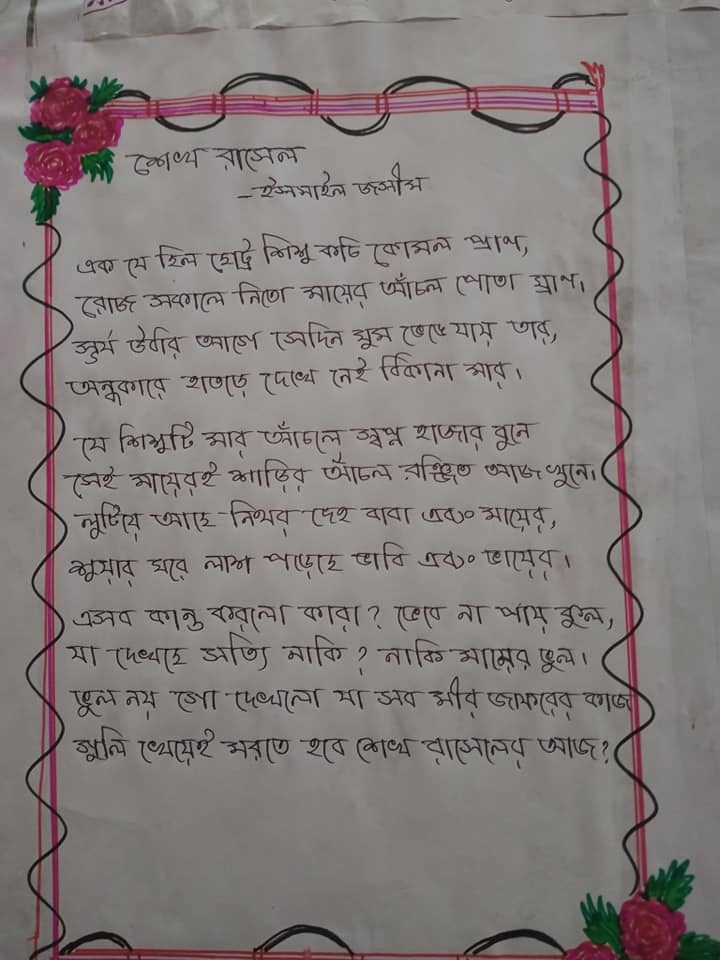 শেখ রাসেল
-ইসমাইল জসীম
এক যে ছিল ছোট্ট শিশু কচি কোমল প্রাণ,
রোজ সকালে নিতো মায়ের আঁচল পোতা ঘ্রাণ।
সূর্য উঠার আগে সেদিন ঘুম ভেঙে যায় তার,
অন্ধকারে হাতড়ে দেখে নেই ঠিকানা মার।
যে শিশুটি মার আঁচলে স্বপ্ন হাজার বুনে
সেই মায়েরই শাড়ির আঁচল রঞ্জিত আজ খুনে।
লুটিয়ে আছে নিথর দেহ বাবা এবং মায়ের,
শুয়ার ঘরে লাশ পড়েছে ভাবি এবং ভায়ের।
এসব কান্ড করলো কারা? ভেবে না পায় কুল,
যা দেখছে সত্যি নাকি? নাকি মায়ের ভুল।
ভুল নয় গো দেখলো যা সব মীর জাফরের কাজ
গুলি খেয়েই মরতে হবে শেখ রাসেলের আজ?